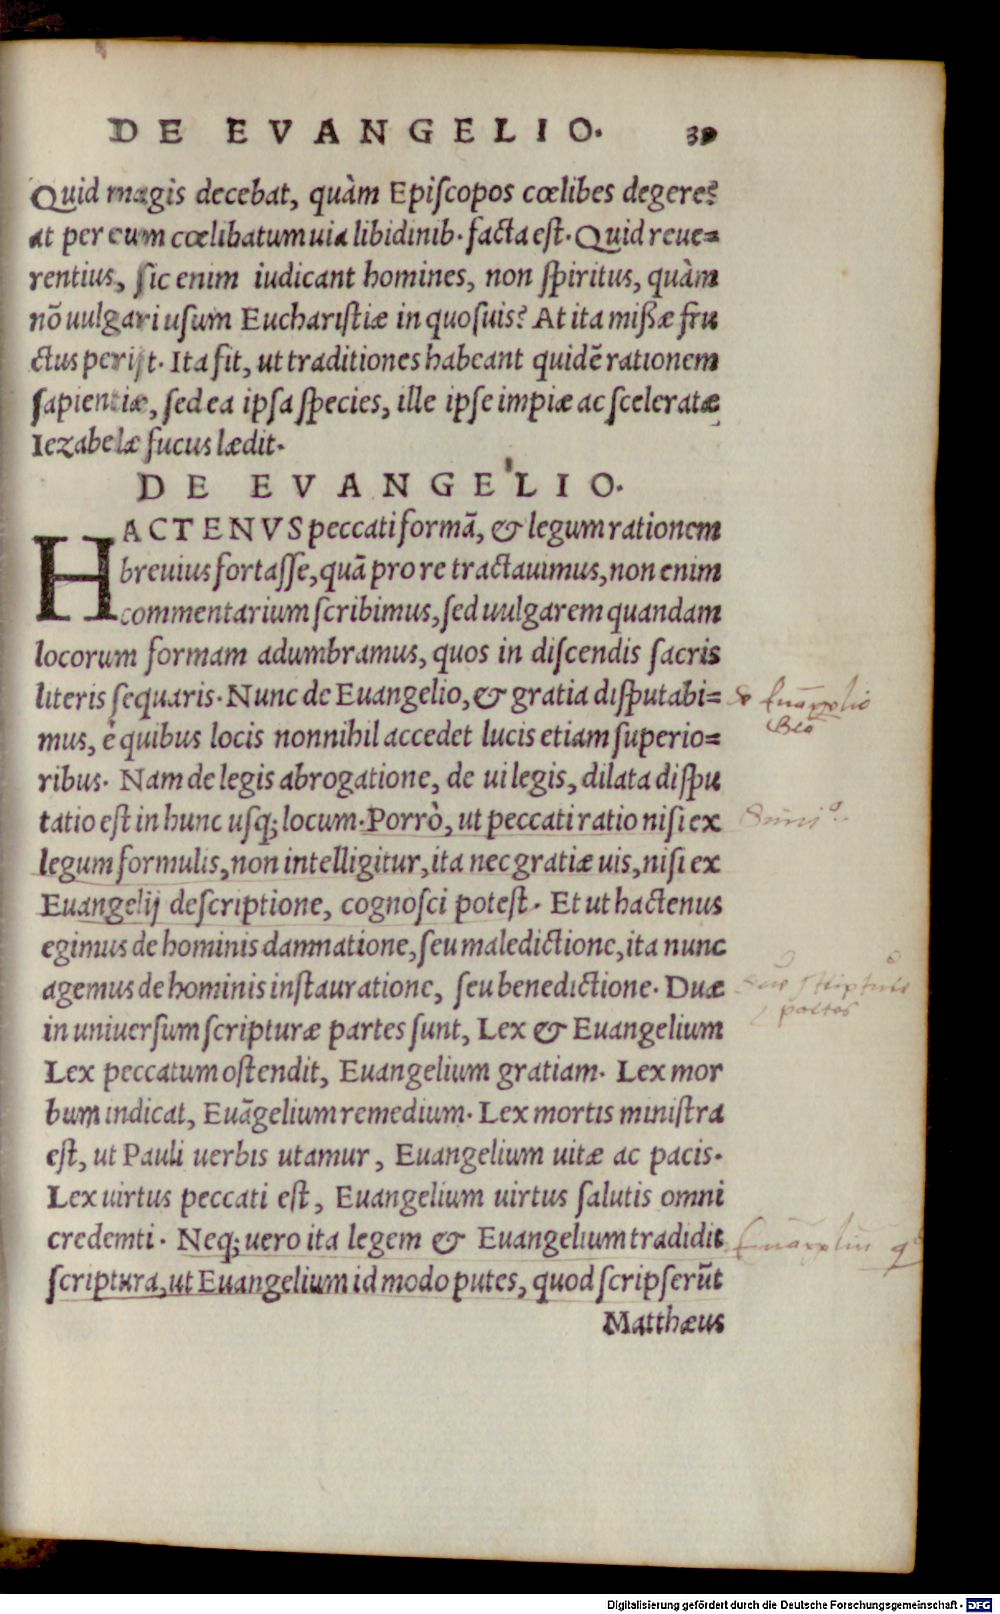 DE EVANGELIO. 39
Quid magis decebat, quàm Episcopos cœlibes degere?
at per eum cœlibatum uia libidinib. facta est. Quid reue=
rentius, sic enim iudicant homines, non spiritus, quàm
nō uulgari usum Eucharistiæ in quo suis? At ita missæ fru
ctus perijt. Ita fit, ut traditiones habeant quidē rationem
sapientiæ, sed ea ipsa species, ille ipse impiæ ac sceleratæ
Iezabelæ fucus lædit.
DE EVANGELIO.
HACTENVS peccati formā, & legum rationem
breuius fortasse, quā pro re tractauimus, non enim
commentarium scribimus, sed uulgarem quandam
locorum formam adumbramus, quos in discendis sacris
literis sequaris. Nunc de Euangelio, & gratia disputabi=
mus, è quibus locis nonnihil accedet lucis etiam superio=
ribus. Nam de legis abrogatione, de ui legis, dilata dispu
tatio est in hunc usq; locum. Porrò, ut peccati ratio nisi ex
legum formulis, non intelligitur, ita nec gratiæ uis, nisi ex
Euangelij descriptione, cognosci potest. Et ut hactenus
egimus de hominis damnatione, seu maledictione, ita nunc
agemus de hominis instauratione, seu benedictione. Duæ
in uniuersum scripturæ partes sunt, Lex & Euangelium
Lex peccatum ostendit, Euangelium gratiam. Lex mor
bum indicat, Euāgelium remedium. Lex mortis ministra
est, ut Pauli uerbis utamur, Euangelium uitæ ac pacis.
Lex uirtus peccati est, Euangelium uirtus salutis omni
credemti. Neq; uero ita legem & Euangelium tradidit
scriptura, ut Euangelium id modo putes, quod scripserūt
Matthæus
Digitalisierung gefördert durch die Deutsche Forschungsgemeinschaft - DFG